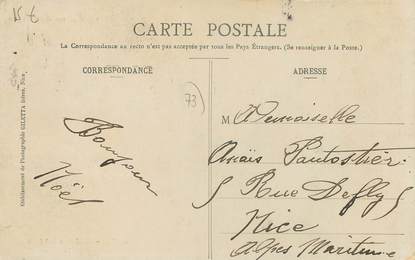 15 €
CARTE POSTALE
La Correspondance au recto n'est pas acceptée par tous les Pays Étrangers. (Se renseigner à la Poste.)
CORRESPONDANCE
ADRESSE
Etablissement de Photographie GILETTA frères, Nice
73
Bonjour
Noël
Mademoiselle
Anaïs
5 Rue Defly 5
Nice
Alpes Maritime